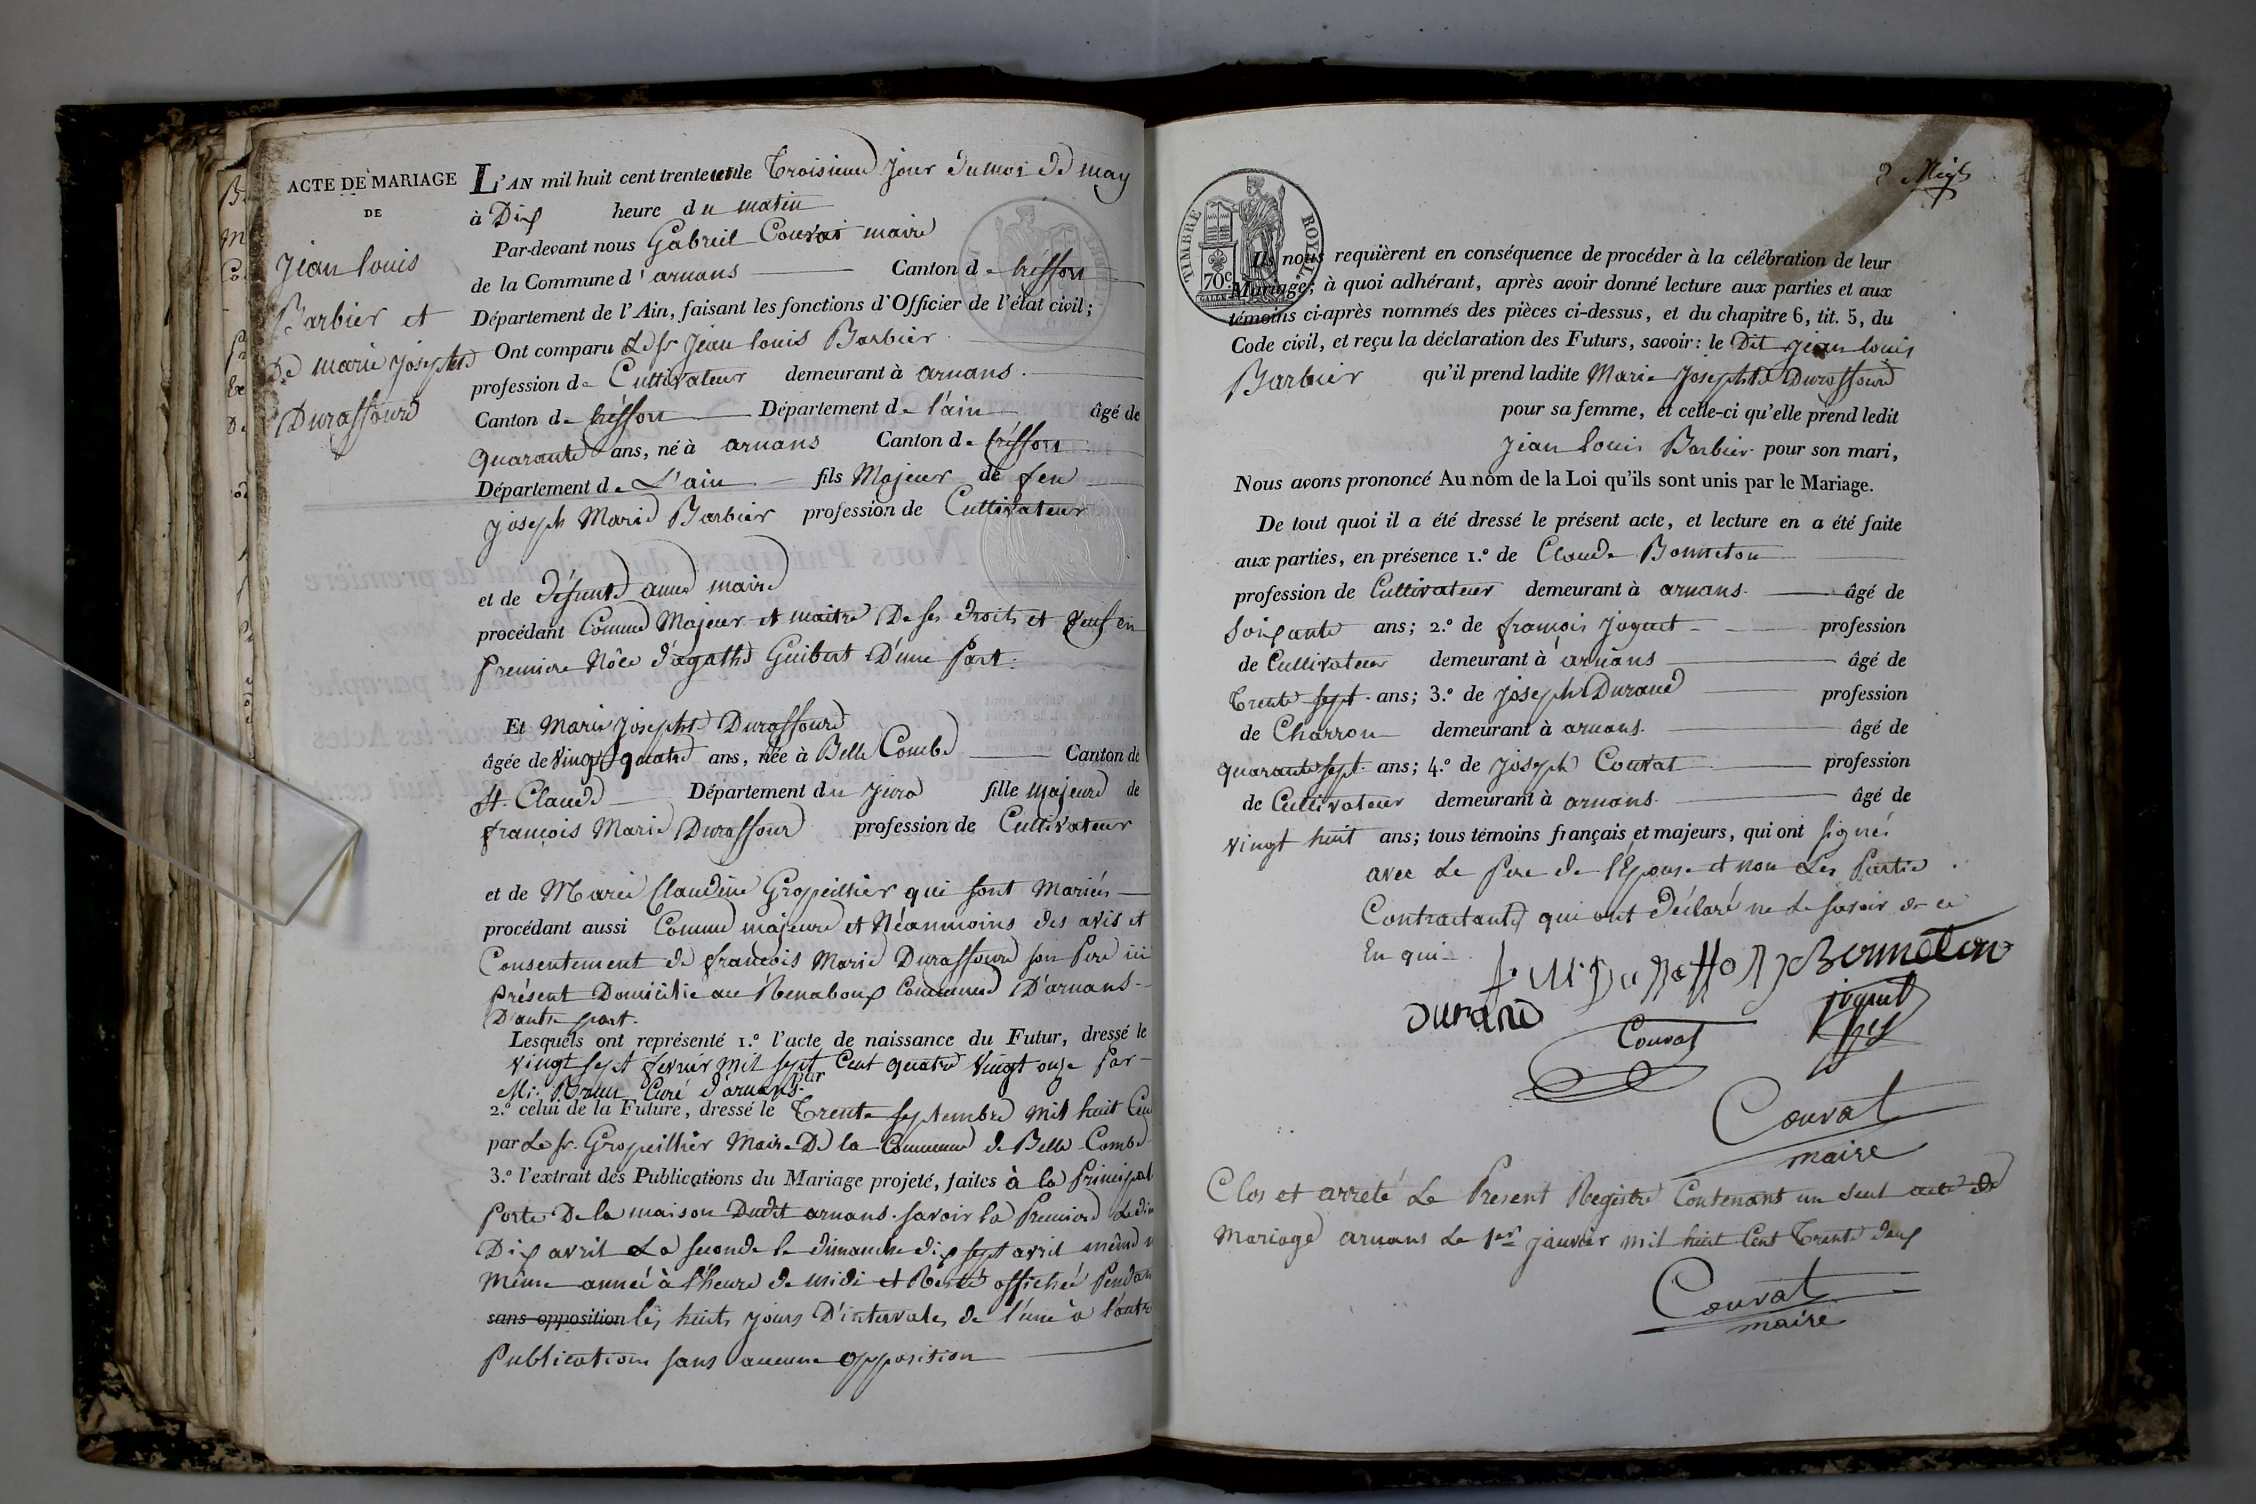 ACTE DE MARIAGE
DE
Jean Louis
Barbier et
De marie josephte
Duraffourd
L'AN mil huit cent trente un le Troisieme jour du mois de may
à Dix heure du matin
Par-devant nous Gabriel Couvat maire
de la Commune d'arnans Canton de tréffort
Département de l'Ain, faisant les fonctions d'Officier de l'état civil;
Ont comparu Le sr Jean Louis Barbier
profession de Cultivateur demeurant à arnans.
Canton de tréffort Département de l'ain âgé de
quarante ans, né à arnans Canton de tréffort
Département de L'ain fils Majeur de feu
joseph Marie Barbier profession de Cultivateur
et de défunte anne maire
procédant Comme Majeur et maitre De ses droits et veuf en
premiere Nôce d'agathe Guibert D'une Part.
Et Marie josephte Duraffourd
âgée de vingt quatre ans, née à Belle Combe Canton de
St. Claude Département du jura fille majeure de
françois Marie Duraffourd profession de Cultivateur
et de Marie Claudine Grospeillier qui sont Mariés
procédant aussi Comme majeure et Néanmoins des avis et
Consentement de françois Marie Duraffourd son Pere ici
présent Domicilié au Commune D'arnans
D'autre part.
Lesquels ont représenté 1.º l'acte de naissance du Futur, dressé le
vingt sept fevrier mil sept Cent quatre vingt onze Par
Mr. Brun Curé d'arnans par
2.º celui de la Future, dressé le Trente septembre mil huit Cen
par Le sr. Grospeillier Maire De la Commune de Belle Combe
3.º l'extrait des Publications du Mariage projeté, faites à la Principal
porte De la maison Dudit arnans. savoir la Premiere Le dim
Dix avril La seconde le dimanche dix sept avril même m
même année à l'heure de midi et Resté affiché Pendan
sans opposition les huits jours D'intervale de l'une à l'autre
publication sans aucune opposition
TIMBRE ROYAL
70c
Ils nous requièrent en conséquence de procéder à la célébration de leur
Mariage; à quoi adhérant, après avoir donné lecture aux parties et aux
témoins ci-après nommés des pièces ci-dessus, et du chapitre 6, tit. 5, du
Code civil, et reçu la déclaration des Futurs, savoir: le Dit jean louis
Barbier qu'il prend ladite Marie Josephte Duraffourd
pour sa femme, et celle-ci qu'elle prend ledit
Jean Louis Barbier pour son mari,
Nous avons prononcé Au nom de la Loi qu'ils sont unis par le Mariage.
De tout quoi il a été dressé le présent acte, et lecture en a été faite
aux parties, en présence 1.º de Claude Bonneton
profession de Cultivateur demeurant à arnans. âgé de
soixante ans; 2.º de françois joguet profession
de Cultivateur demeurant à arnans âgé de
Trente sept ans; 3.º de joseph Durand profession
de Charron demeurant à arnans. âgé de
quarante sept ans; 4.º de joseph Couvat profession
de Cultivateur demeurant à arnans. âgé de
vingt huit ans; tous témoins français et majeurs, qui ont signés
avec Le Pere de l'Epouse et non Les Partie
Contractante qui ont déclaré ne Le savoir de ce
Enquis
Bonneton
Durand Couvat joguet
Couvat
maire
Clos et arreté Le Present Registre Contenant un seul acte de
Mariage arnans Le 1er janvier mil huit Cent Trente deux
Couvat
maire